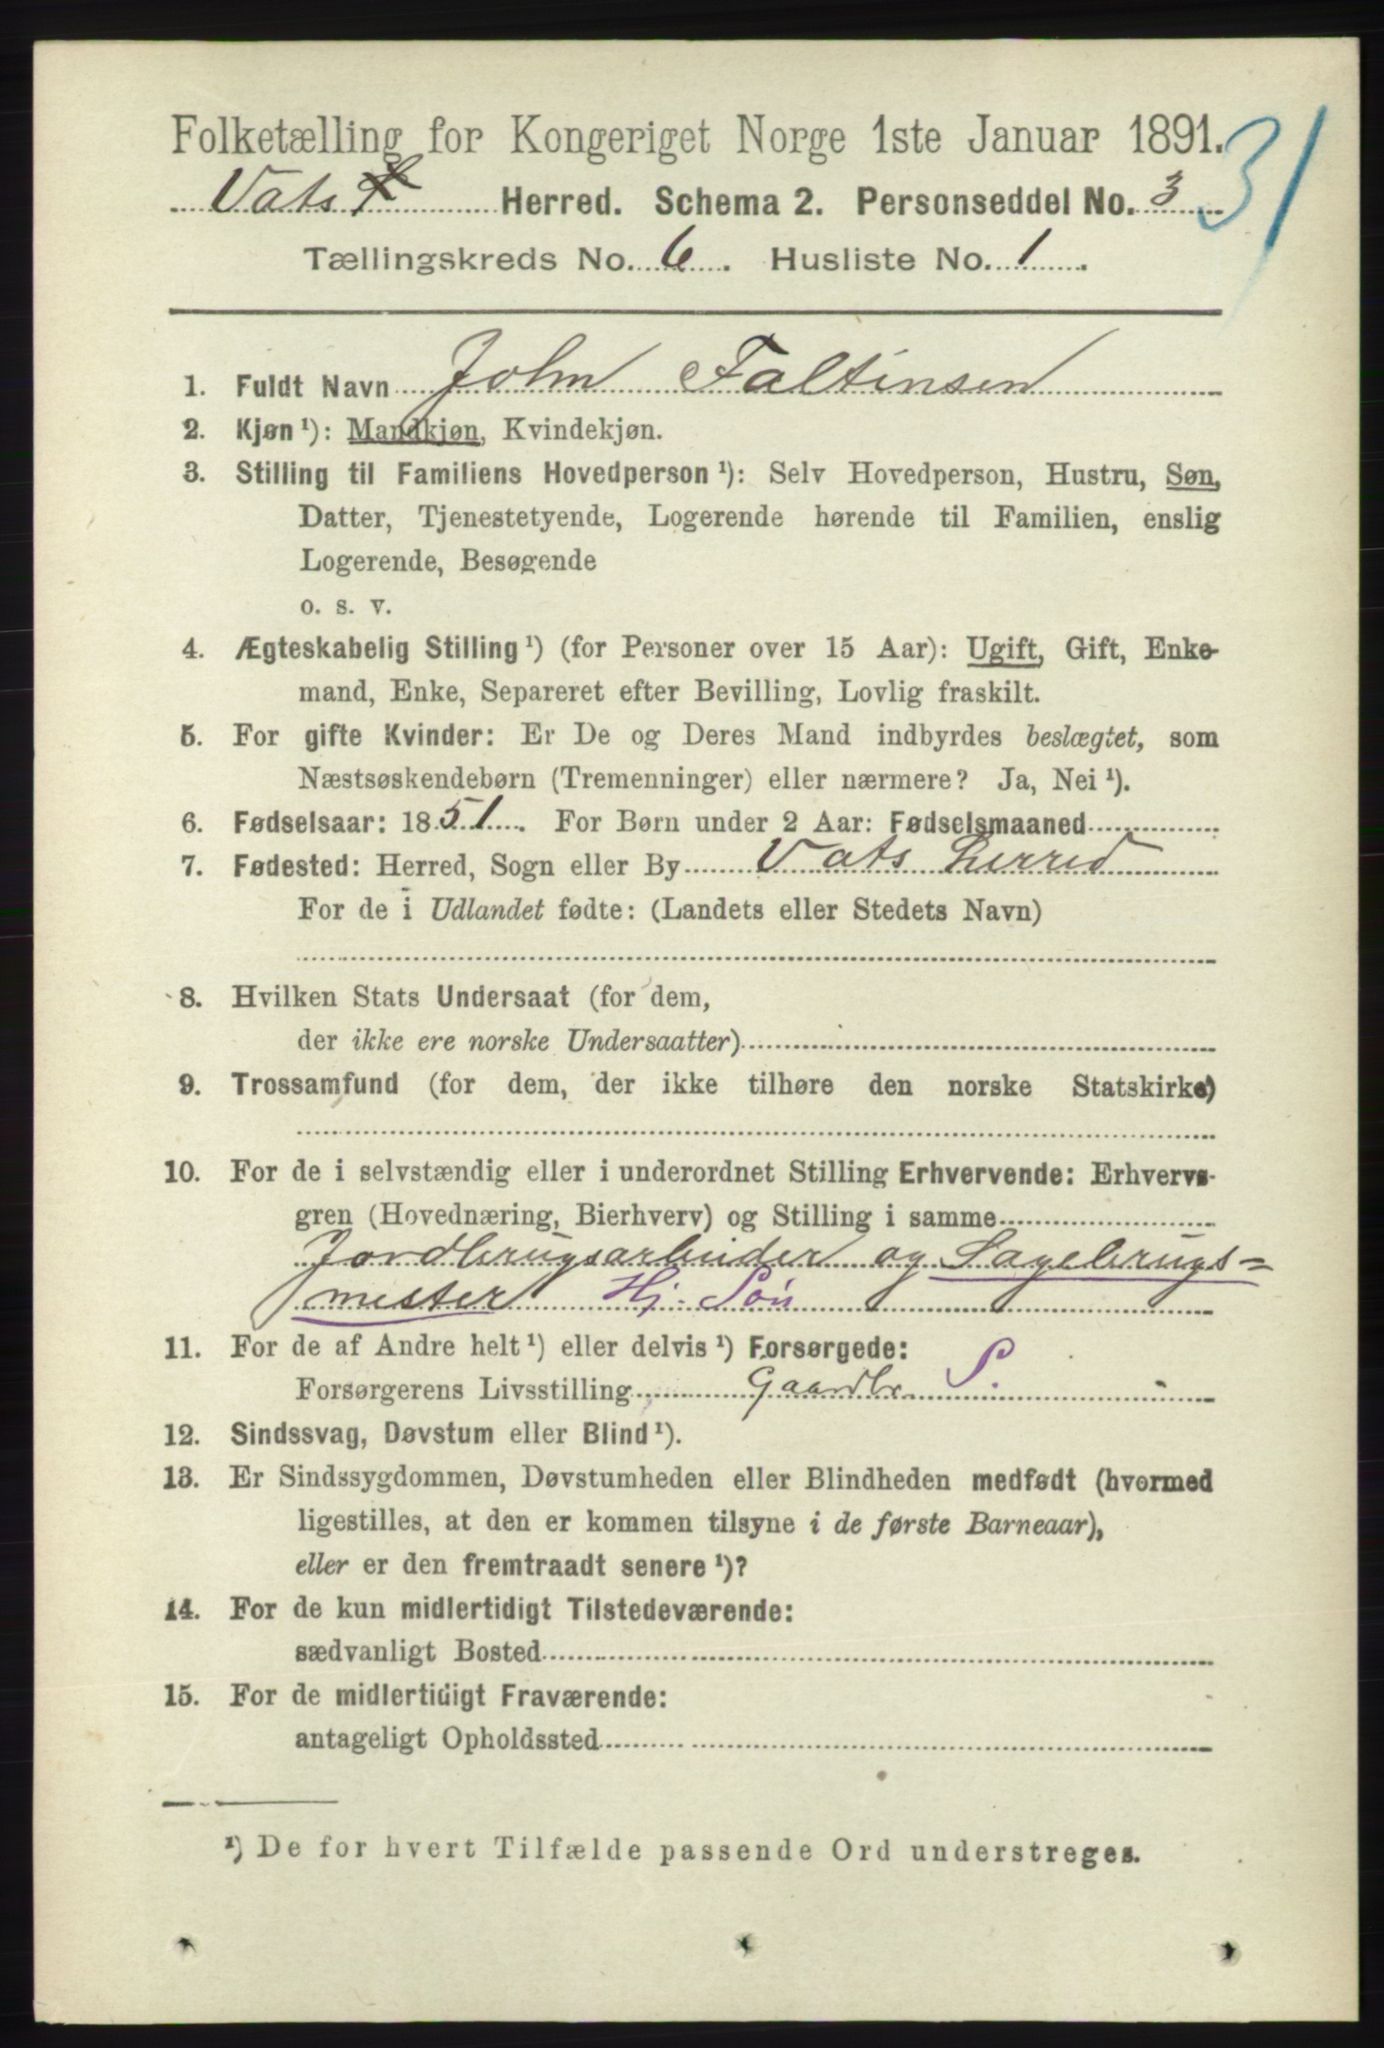 Folketælling for Kongeriget Norge 1ste Januar 1891.
31
Vats Herred. Schema 2. Personseddel No. 3
Tællingskreds No. 6. Husliste No. 1.
1. Fuldt Navn John Faltinsen
2. Kjøn ¹): Mandkjøn, Kvindekjøn.
3. Stilling til Familiens Hovedperson ¹): Selv Hovedperson, Hustru, Søn,
Datter, Tjenestetyende, Logerende hørende til Familien, enslig
Logerende, Besøgende
o. s. v.
4. Ægteskabelig Stilling ¹) (for Personer over 15 Aar): Ugift, Gift, Enke-
mand, Enke, Separeret efter Bevilling, Lovlig fraskilt.
5. For gifte Kvinder: Er De og Deres Mand indbyrdes beslægtet, som
Næstsøskendebørn (Tremenninger) eller nærmere? Ja, Nei ¹).
6. Fødselsaar: 1851. For Børn under 2 Aar: Fødselsmaaned
7. Fødested: Herred, Sogn eller By Vats Herred
For de i Udlandet fødte: (Landets eller Stedets Navn)
8. Hvilken Stats Undersaat (for dem,
der ikke ere norske Undersaatter)
9. Trossamfund (for dem, der ikke tilhøre den norske Statskirke)
10. For de i selvstændig eller i underordnet Stilling Erhvervende: Erhvervs-
gren (Hovednæring, Bierhverv) og Stilling i samme
Jordbrugsarbeider og Sagebrugs=
mester Hj. Søn
11. For de af Andre helt ¹) eller delvis ¹) Forsørgede:
Forsørgerens Livsstilling Gaardbr. S.
12. Sindssvag, Døvstum eller Blind ¹).
13. Er Sindssygdommen, Døvstumheden eller Blindheden medfødt (hvormed
ligestilles, at den er kommen tilsyne i de første Barneaar),
eller er den fremtraadt senere ¹)?
14. For de kun midlertidigt Tilstedeværende:
sædvanligt Bosted
15. For de midlertidigt Fraværende:
antageligt Opholdssted
¹) De for hvert Tilfælde passende Ord understreges.